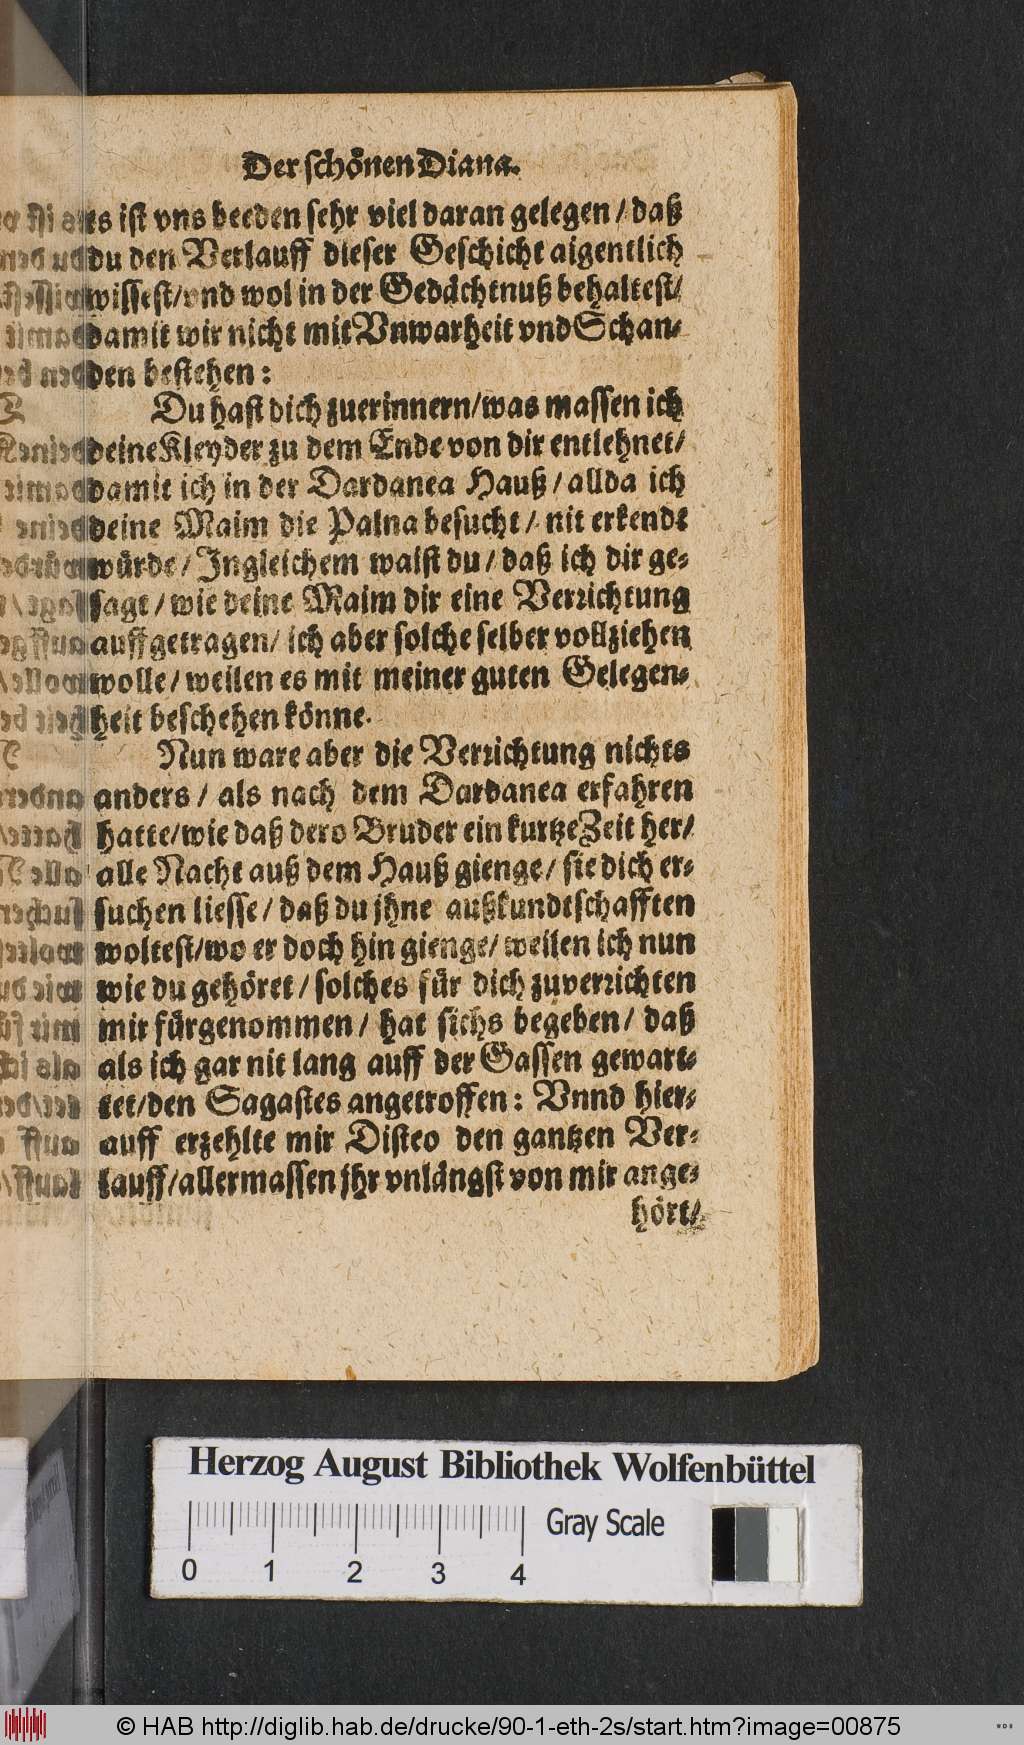 Der schönen Diana.
es ist vns beeden sehr viel daran gelegen / daß
du den Verlauff dieser Geschicht aigentlich
wissest/vnd wol in der Gedächtnuß behaltest/
damit wir nicht mit Vnwarheit vnd Schan-
den bestehen:
Du hast dich zuerinnern/was massen ich
deine Kleyder zu dem Ende von dir entlehnet/
damit ich in der Dardanea Hauß / allda ich
deine Maim die Palna besucht / nit erkendt
würde / Ingleichem waist du / daß ich dir ge-
sagt / wie deine Maim dir eine Verrichtung
auffgetragen/ ich aber solche selber vollziehen
wolle / weilen es mit meiner guten Gelegen-
heit beschehen könne.
Nun ware aber die Verrichtung nichts
anders / als nach dem Dardanea erfahren
hatte/wie daß dero Bruder ein kurtze Zeit her/
alle Nacht auß dem Hauß gienge/ sie dich er-
suchen liesse / daß du jhne außkundtschafften
woltest/wo er doch hin gienge/ weilen ich nun
wie du gehöret / solches für dich zuverrichten
mir fürgenommen / hat sichs begeben/ daß
als ich gar nit lang auff der Gassen gewart-
tet/den Sagastes angetroffen: Vnnd hier-
auff erzehlte mir Disteo den gantzen Ver-
lauff/allermassen jhr vnlängst von mir ange-
hört/
Herzog August Bibliothek Wolfenbüttel
Gray Scale
0 1 2 3 4
© HAB http://diglib.hab.de/drucke/90-1-eth-2s/start.htm?image=00875